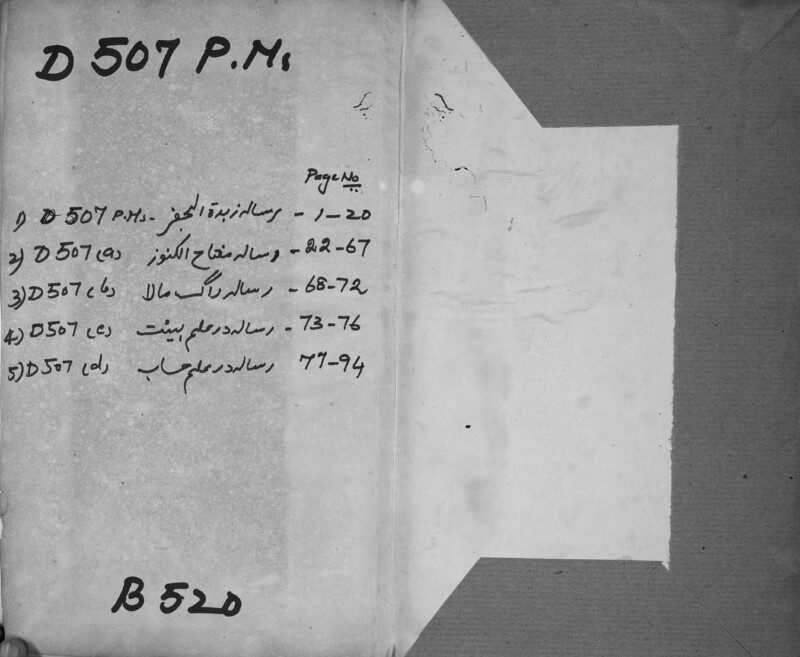 D 507 P.M.
Page No
1) D 507 P.M. - رساله زبدة الجفر - 1-20
2) D 507 (a) رساله مفتاح الكنوز - 22-67
3) D 507 (b) رساله راگ مالا - 68-72
4) D 507 (c) رساله در علم هیئت - 73-76
5) D 507 (d) رساله در علم حساب 77-94
B 520